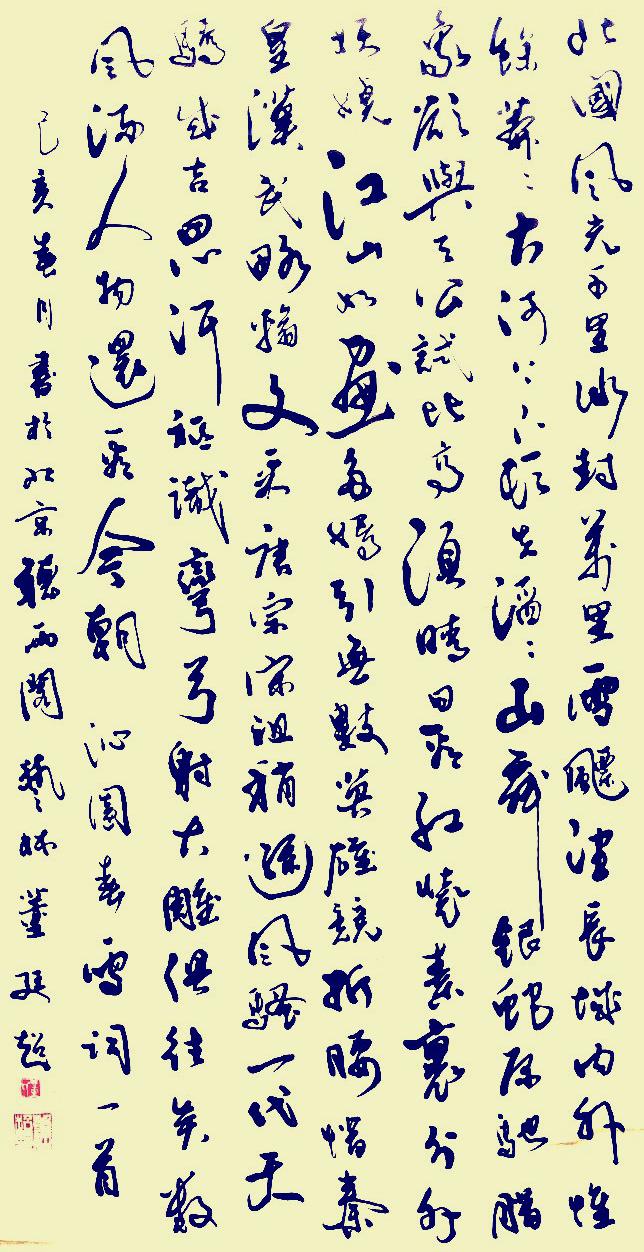 北國風光千里冰封萬里雪飄望長城內外惟
餘莽〻大河上下頓失滔〻山舞銀蛇原馳臘
象欲與天公試比高須晴日看紅嬈素裹分外
妖嬈江山如畫多嬌引無數英雄競折腰惜秦
皇漢武略輸文采唐宗宋祖稍遜風騷一代天
驕成吉思汗祗識彎弓射大雕俱往矣數
風流人物還看今朝 沁園春雪詞一首
己亥春月書於北京聽雨閣藝林董廷超